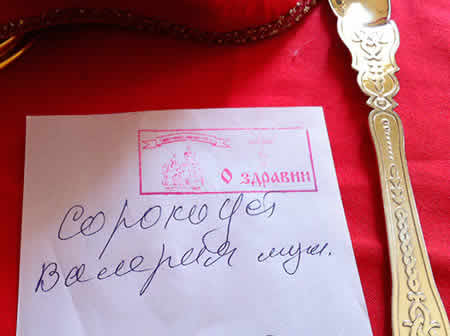 О здравии
Сорокоуст
Валерия